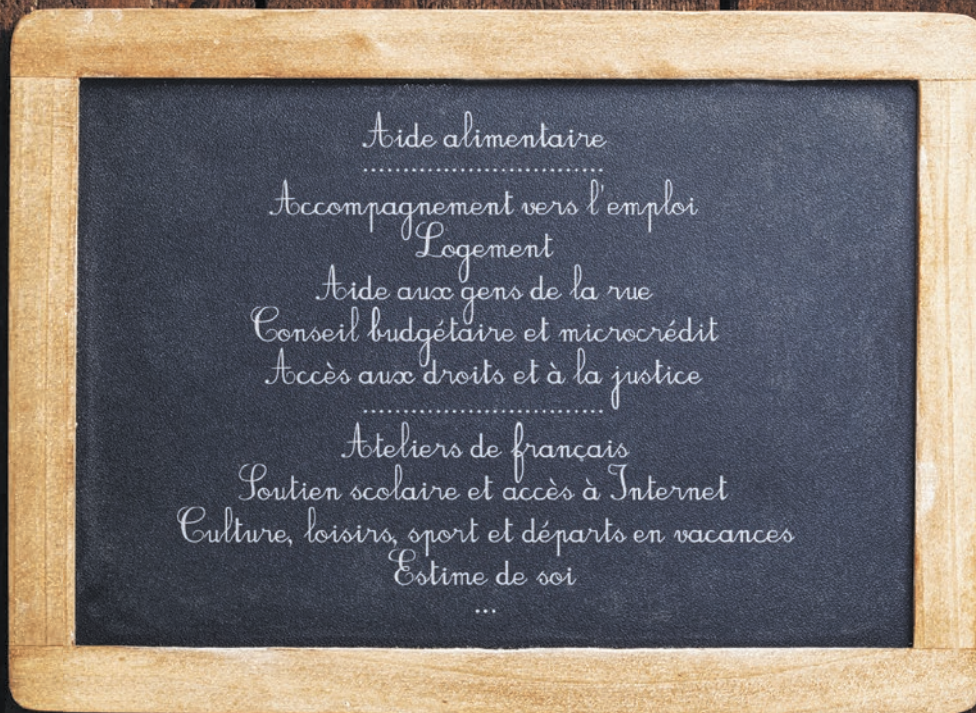 Aide alimentaire
..............................
Accompagnement vers l'emploi
Logement
Aide aux gens de la rue
Conseil budgétaire et microcrédit
Accès aux droits et à la justice
..............................
Ateliers de français
Soutien scolaire et accès à Internet
Culture, loisirs, sport et départs en vacances
Estime de soi
...